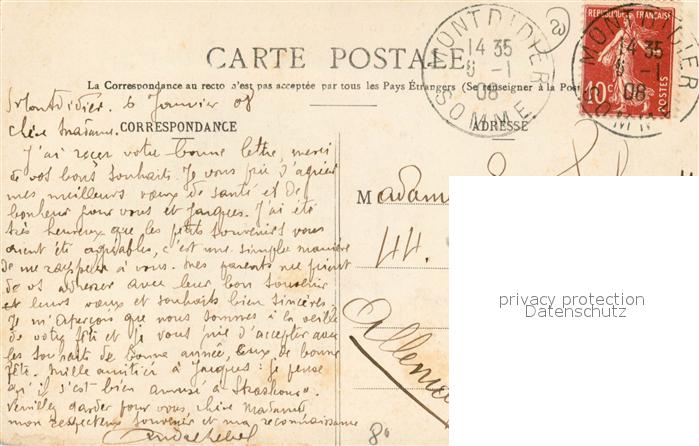 CARTE POSTALE
La Correspondance au recto n'est pas acceptée par tous les Pays Étrangers (Se renseigner à la Post
CORRESPONDANCE
ADRESSE
REPUBLIQUE FRANÇAISE
10c
POSTES
MONTDIDIER
14 35
6 -1
08
SOMME
MONTDIDIER
14 35
6 -1
08
SOMME
Montdidier. 6 Janvier 08
Chère Madame.
J'ai reçu votre bonne lettre, merci
de vos bons souhaits. Je vous prie d'agréer
mes meilleurs vœux de santé et de
bonheur pour vous et Jacques. J'ai été
très heureux que les petits souvenirs vous
aient été agréables, c'est une simple manière
de me rappeler à vous. Mes parents me prient
de vs adresser avec leur bon souvenir
et leurs vœux et souhaits bien sincères.
Je m'aperçois que nous sommes à la veille
de votre fête et je vous prie d'accepter avec
les souhaits de bonne année, ceux de bonne
fête. Mille amitiés à Jacques : je pense
qu'il s'est bien amusé à Strasbourg.
Veuillez garder pour vous, chère Madame,
mon respectueux souvenir et ma reconnaissance
Madame
44.
Allema
80
privacy protection
Datenschutz